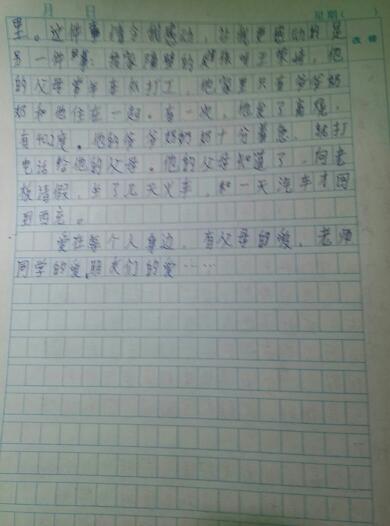 月 日 星期（ ）
改错
里。这件事情令我感动，让我更感动的是
另一件事：我家隔壁的 叫王 ，他
的父母常年在外打工，他家里只有爷爷奶
奶和他住在一起。有一次，他发了高烧，
有40.2度。他的爷爷奶奶奶十分着急，就打
电话给他的父母。他的父母知道了，向老
板请假，坐了几天火车，和一天汽车才回
到西 。
爱在每个人身边，有父母的爱、老师
同学的爱、朋友们的爱……